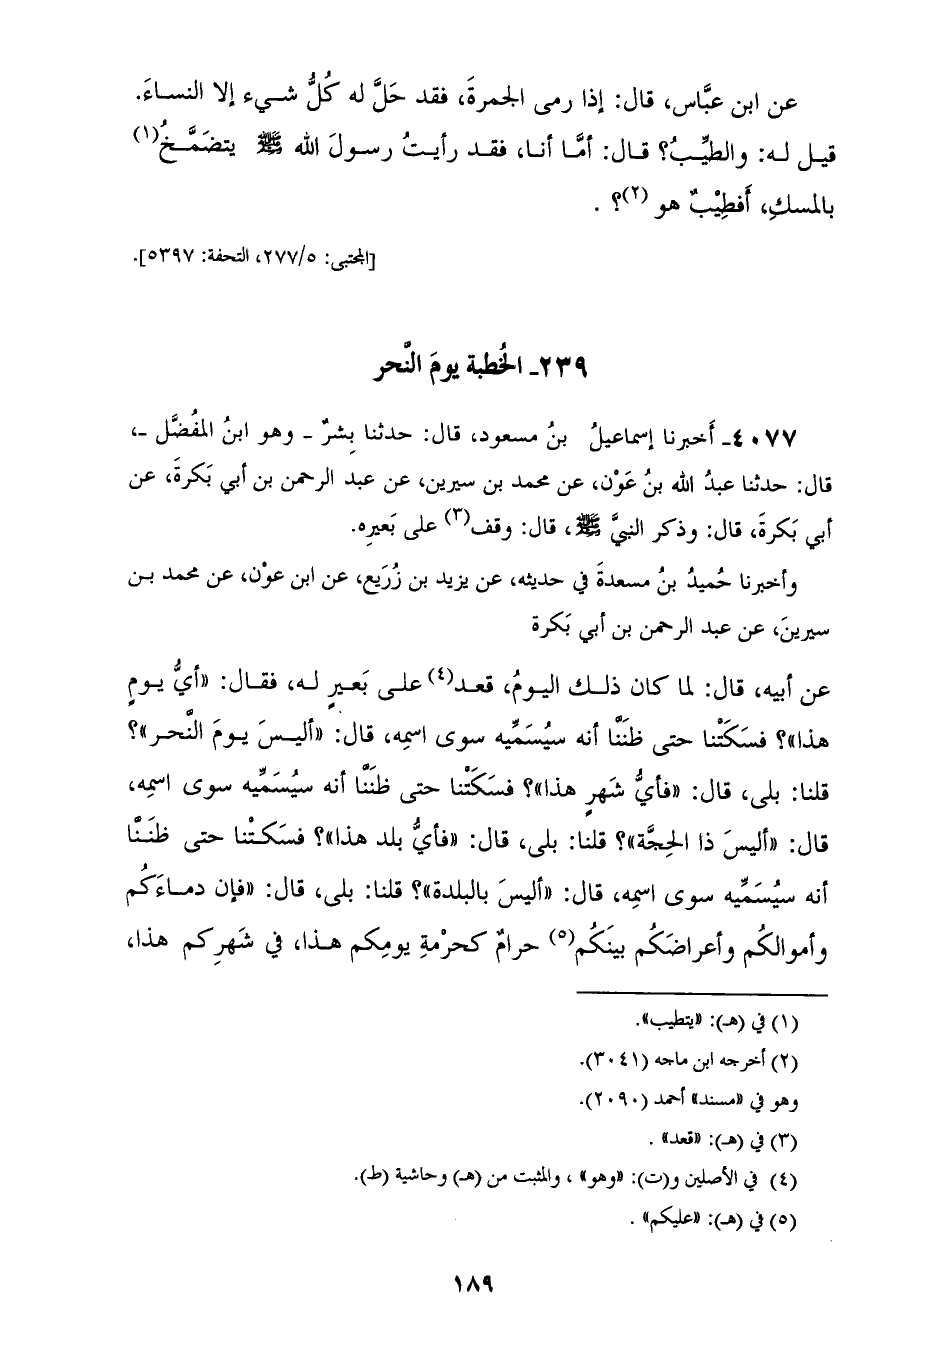 عن ابن عبَّاس، قال: إذا رمى الجمرةَ، فقد حَلَّ له كُلُّ شيء إلا النساءَ.
قيل له: والطيِّبُ؟ قال: أمَّا أنا، فقد رأيتُ رسولَ الله ﷺ يتضمَّخُ(١)
بالمسكِ، أَفطِيْبٌ هو (٢)؟ .
[المجتبى: ٢٧٧/٥، التحفة: ٥٣٩٧].
٢٣٩ـ الخُطبة يومَ النَّحر
٤٠٧٧ـ أَخبرنا إسماعيلُ بنُ مسعود، قال: حدثنا بِشرٌ ـ وهو ابنُ المُفضَّل ـ،
قال: حدثنا عبدُ الله بنُ عَوْن، عن محمد بن سيرين، عن عبد الرحمن بن أبي بَكرةَ، عن
أبي بَكرةَ، قال: وذكر النبيَّ ﷺ، قال: وقف(٣) على بَعيرِه.
وأخبرنا حُميدُ بنُ مسعدةَ في حديثه، عن يزيد بن زُرَيع، عن ابن عوْن، عن محمد بن
سيرينَ، عن عبد الرحمن بن أبي بَكرة
عن أبيه، قال: لما كان ذلك اليومُ، قعد(٤) على بَعيرٍ له، فقال: «أيُّ يومٍ
هذا»؟ فسَكَتْنا حتى ظنَنَّا أنه سيُسَمِّيه سوى اسمِه، قال: «أليسَ يومَ النَّحر»؟
قلنا: بلى، قال: «فأيُّ شَهرٍ هذا»؟ فسَكَتْنا حتى ظنَنَّا أنه سيُسَمِّيه سوى اسمِه،
قال: «أليسَ ذا الحِجَّة»؟ قلنا: بلى، قال: «فأيُّ بلد هذا»؟ فسَكَتْنا حتى ظنَنَّا
أنه سيُسَمِّيه سوى اسمِه، قال: «أليسَ بالبلدة»؟ قلنا: بلى، قال: «فإن دماءَكُم
وأموالكُم وأعراضَكُم بينَكُم(٥) حرامٌ كحرْمةِ يومِكم هذا، في شَهرِكم هذا،
(١) في (هـ): «يتطيب».
(٢) أخرجه ابن ماجه (٣٠٤١).
وهو في «مسند» أحمد (٢٠٩٠).
(٣) في (هـ): «قعد» .
(٤) في الأصلين و(ت): «وهو» ، والمثبت من (هـ) وحاشية (ط).
(٥) في (هـ): «عليكم» .
١٨٩